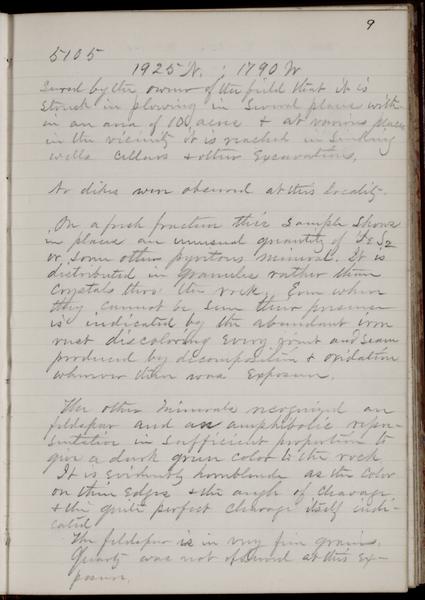 9
5105
1925 N. 1790 W
sured by the owner of the field that it is
struck in plowing in several places with-
in an area of 10 acres & at various places
in the vicinity it is reached in sinking
wells cellars & other excavations.
No dikes were observed at this locality.
On a fresh fracture this sample shows
in places an unusual quantity of FeS2
or some other pyritous mineral. It is
distributed in granules rather than
crystals thro' the rock. Even where
they cannot be seen their presence
is indicated by the abundant iron
rust discoloring every joint and seam
produced by decomposition & oxidation
wherever there was exposure.
The other minerals recognized are
feldspar and an amphibolic repre-
sentative in sufficient proportions to
give a dark green color to the rock.
It is evidently hornblende as the color
on thin edges & the angle of cleavage
& the quite perfect cleavage itself indi-
cated
The feldspar is in very fine grains.
Quartz was not observed at this ex-
posure.